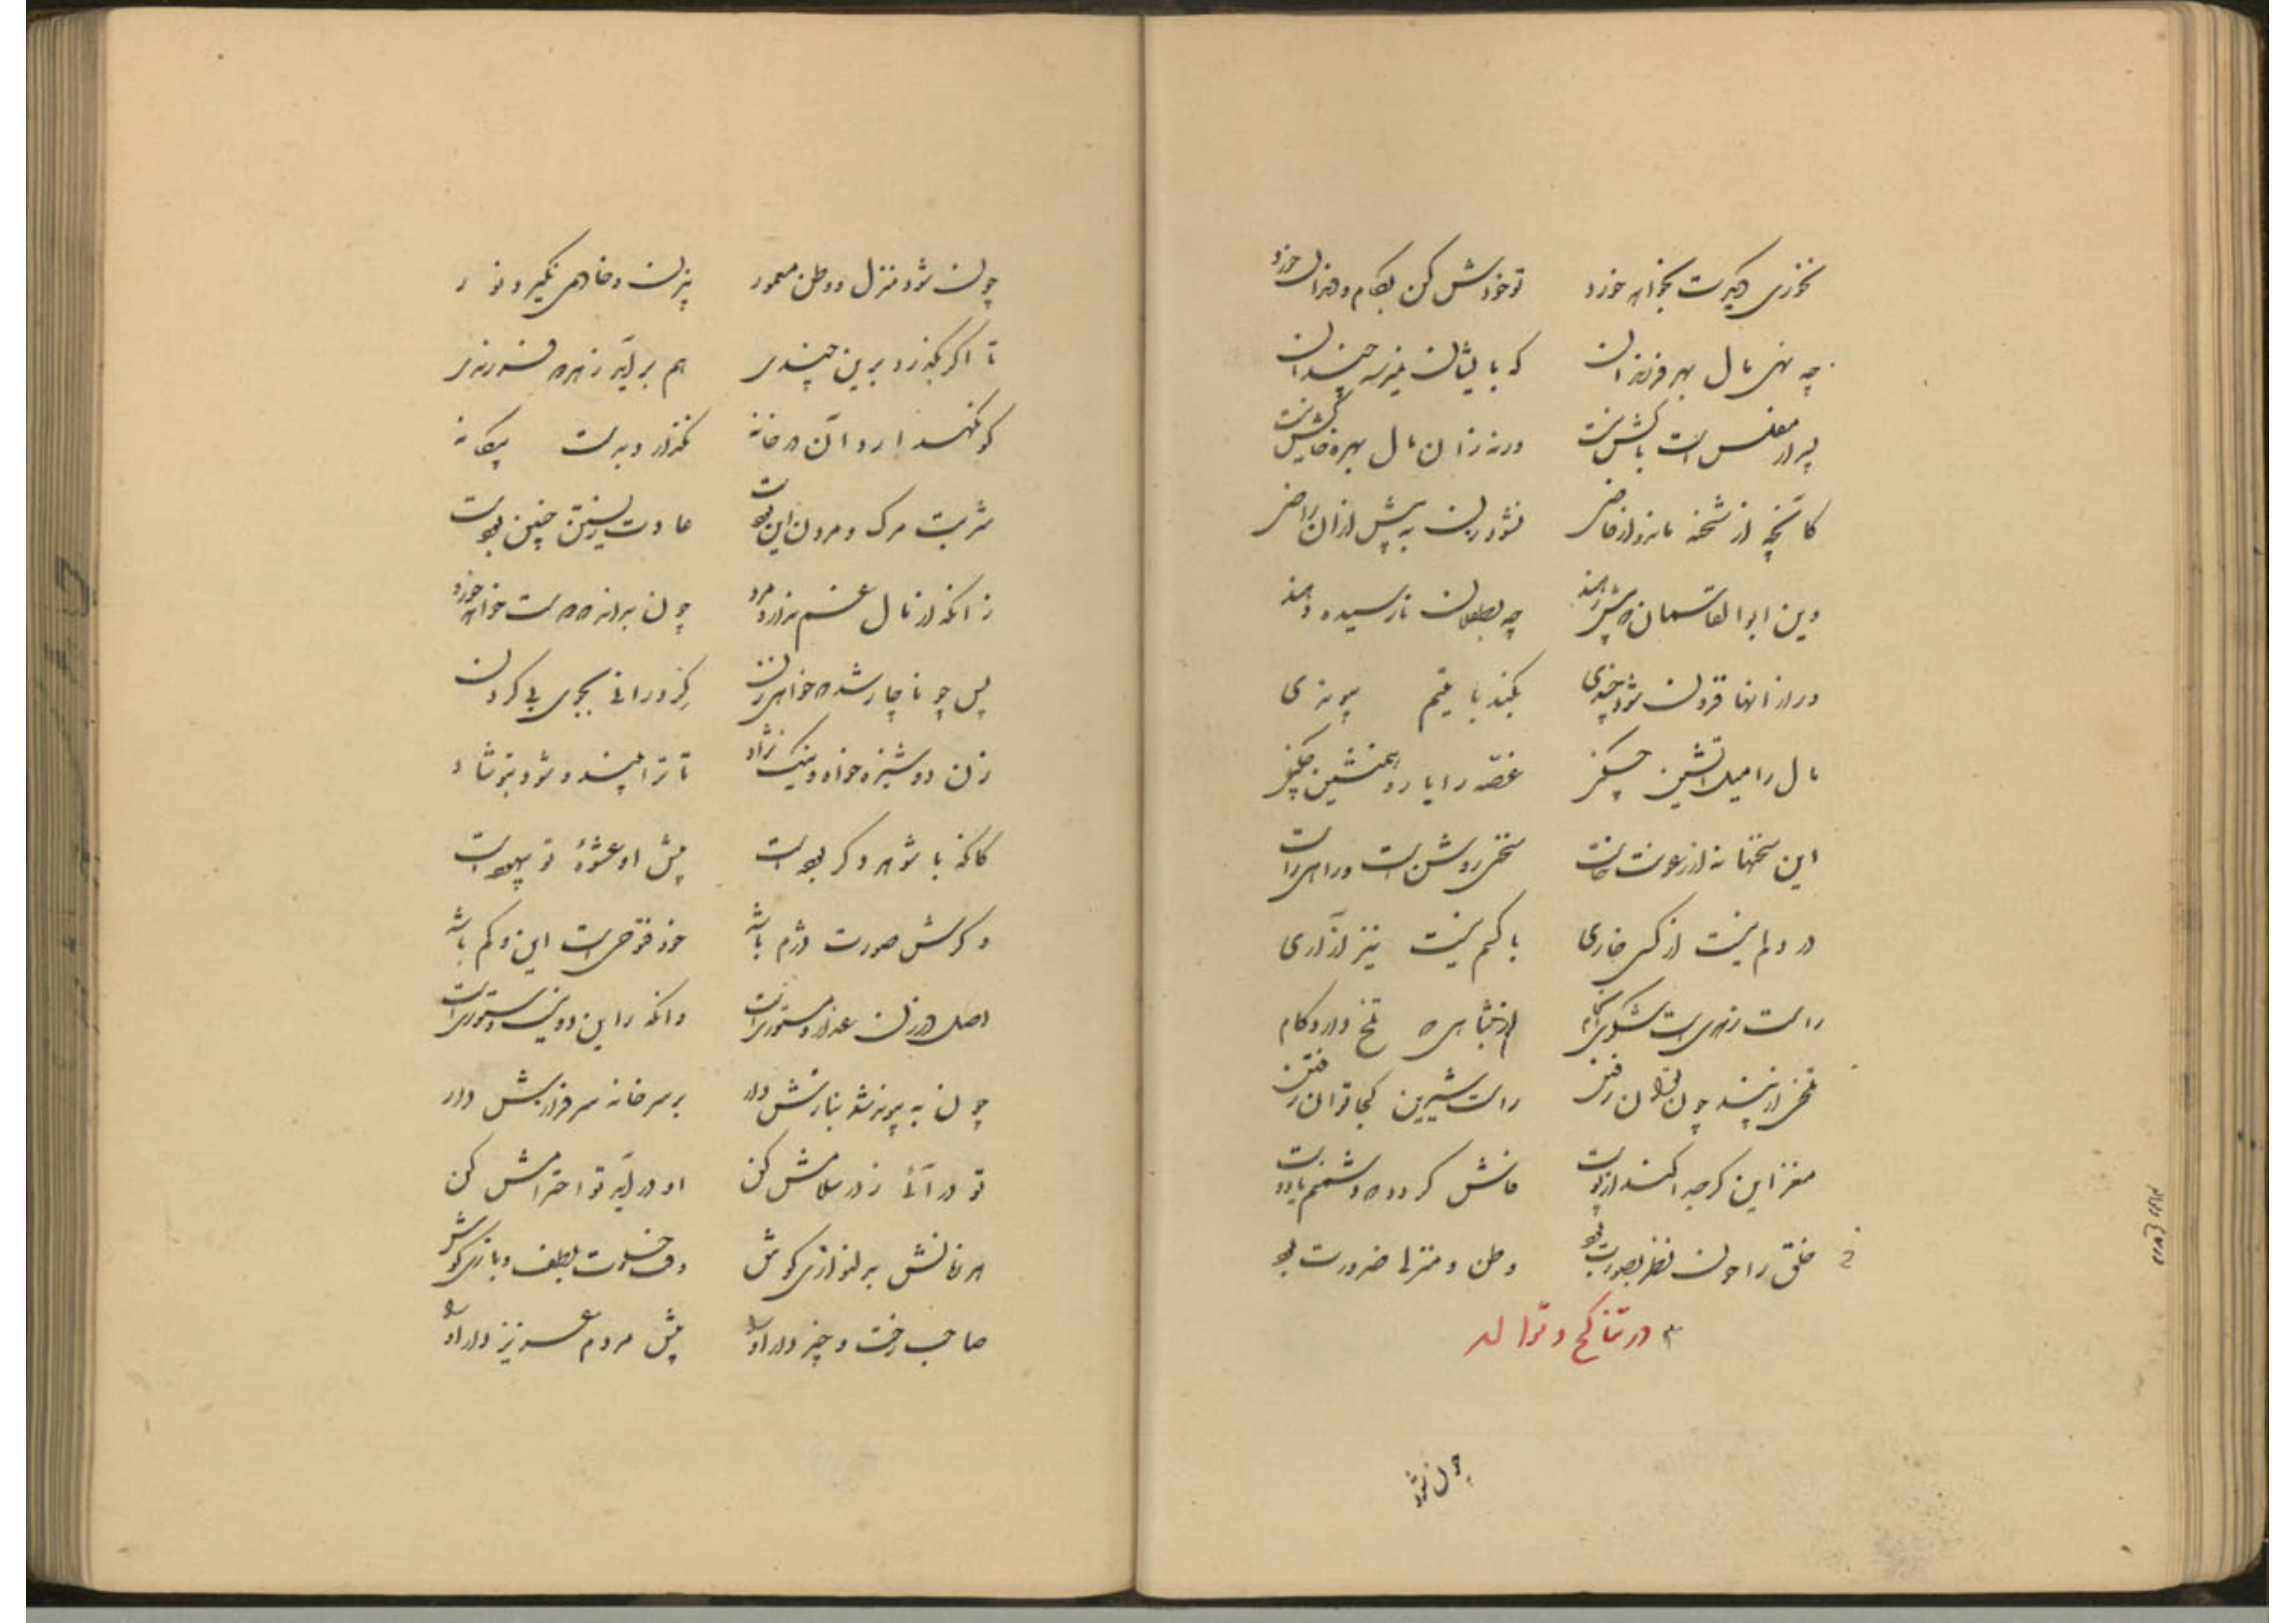 نخوری دیگرت بخواهد خورد تو خورش کن بکام و هزال خورد
چه نهی مال بهر فرزندان که بایشان نمیرسد چندان
پدر ار مفلس است باکش نیست ورنه زان مال بهره خاکش نیست
کانچه از شحنه ماند و از قاضی نشود زن به پیش ازان راضی
وین ابوالقاسمان که پیش دهند چه بطفلان نارسیده دهند
ور از آنها فزون شود چیزی بکند با یتیم
مال را میل آتشین چکنی غصه را یار و همنشین چکنی
این سخنها نه از رعونت خاست سخنی روشن است و راهی راست
در دلم نیست از کسی خاری با کسم نیست نیز آزاری
راست زهریست شکرین انجام تلخ دارد کام
چون توان رفتن راست شیرین کجا توان رفتن
مغز این گرچه اکند از پوست فاش کردم که دشمنم یا دوست
خلق را چون نظر بصورت بود وطن و منزلها ضرورت بود
۳ در تناکح و توالد
چون شود
چون شود منزل و وطن معمور بی زن و خادمی نگیرد نور
تا اگر بگذرد برین چندی هم برآید ز زهره فرزندی
کو نگهدارد آن در خانه نگذارد بدست بیگانه
شربت مرگ و مردن این بودست عادت زیستن چنین بودست
زانکه از مال غم ندارد مرد چون بداند که هست خواهد خورد
پس چو ناچار شد که خواهی زن
زن دوشیزه خواه و نیک نژاد تا ترا بیند و شود بتو شاد
کانکه با شوهر دگر بودست پیش او عشوهٔ تو بیهودست
و گرش صورت دژم باشد خود فتوحی است این و کم باشد
اصل در زن عفاف و مستوریست وانکه را این دو نیست دستوریست
چون به پیوند شد بنازش دار بر سر خانه سرفرازش دار
تو در آئی ز در سلامش کن او در آید تو احترامش کن
هر زمانش بدلنوازی کوش وقت خلوت بلطف و بازی کوش
صاحب رخت و چیز دار او را پیش مردم عزیز دار او را